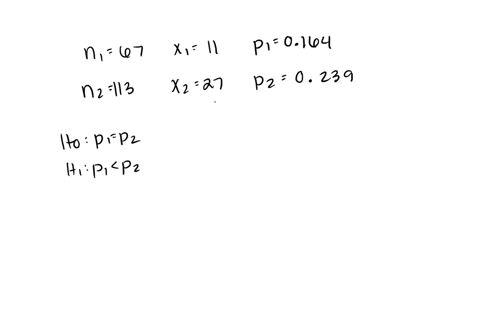 n₁=67 x₁=11 p₁=0.164
n₂=113 x₂=27 p₂=0.239
H₀: p₁=p₂
H₁: p₁<p₂